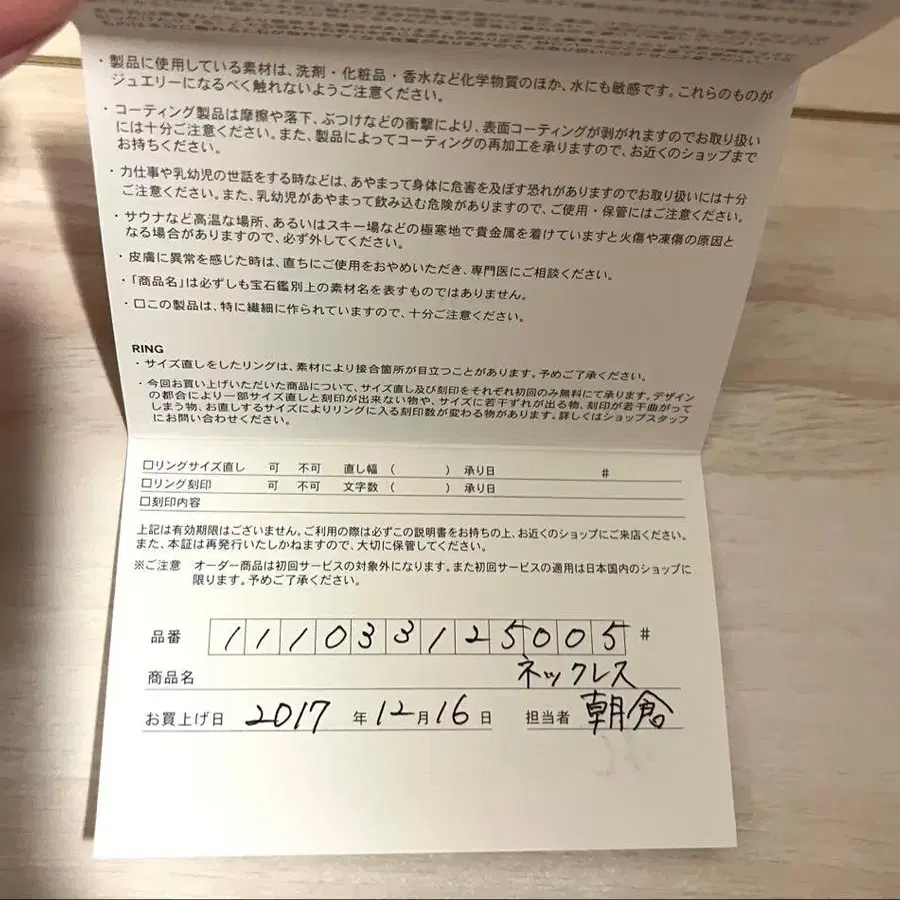 ・製品に使用している素材は、洗剤・化粧品・香水など化学物質のほか、水にも敏感です。これらのものが
ジュエリーになるべく触れないようご注意ください。
・コーティング製品は摩擦や落下、ぶつけなどの衝撃により、表面コーティングが剥がれますのでお取り扱い
には十分ご注意ください。また、製品によってコーティングの再加工を承りますので、お近くのショップまで
お持ちください。
・力仕事や乳幼児の世話をする時などは、あやまって身体に危害を及ぼす恐れがありますのでお取り扱いには十分
ご注意ください。また、乳幼児があやまって飲み込む危険がありますので、ご使用・保管にはご注意ください。
・サウナなど高温な場所、あるいはスキー場などの極寒地で貴金属を着けていますと火傷や凍傷の原因と
なる場合がありますので、必ず外してください。
・皮膚に異常を感じた時は、直ちにご使用をおやめいただき、専門医にご相談ください。
・「商品名」は必ずしも宝石鑑別上の素材名を表すものではありません。
・□この製品は、特に繊細に作られていますので、十分ご注意ください。
RING
・サイズ直しをしたリングは、素材により接合箇所が目立つことがあります。予めご了承ください。
・今回お買い上げいただいた商品について、サイズ直し及び刻印をそれぞれ初回のみ無料にて承ります。デザイン
の都合により一部サイズ直しと刻印が出来ない物や、サイズに若干ずれが出る物、刻印が若干曲がって
しまう物、お直しするサイズによりリングに入る刻印数が変わる物があります。詳しくはショップスタッフ
にお問い合わせください。
□リングサイズ直し 可 不可 直し幅 ( ) 承り日 #
□リング刻印 可 不可 文字数 ( ) 承り日
□刻印内容
上記は有効期限はございません。ご利用の際は必ずこの説明書をお持ちの上、お近くのショップにご来店ください。
また、本証は再発行いたしかねますので、大切に保管してください。
※ご注意 オーダー商品は初回サービスの対象外になります。また初回サービスの適用は日本国内のショップに
限ります。予めご了承ください。
品番 111033125005 #
商品名 ネックレス
お買上げ日 2017 年 12 月 16 日 担当者 朝倉